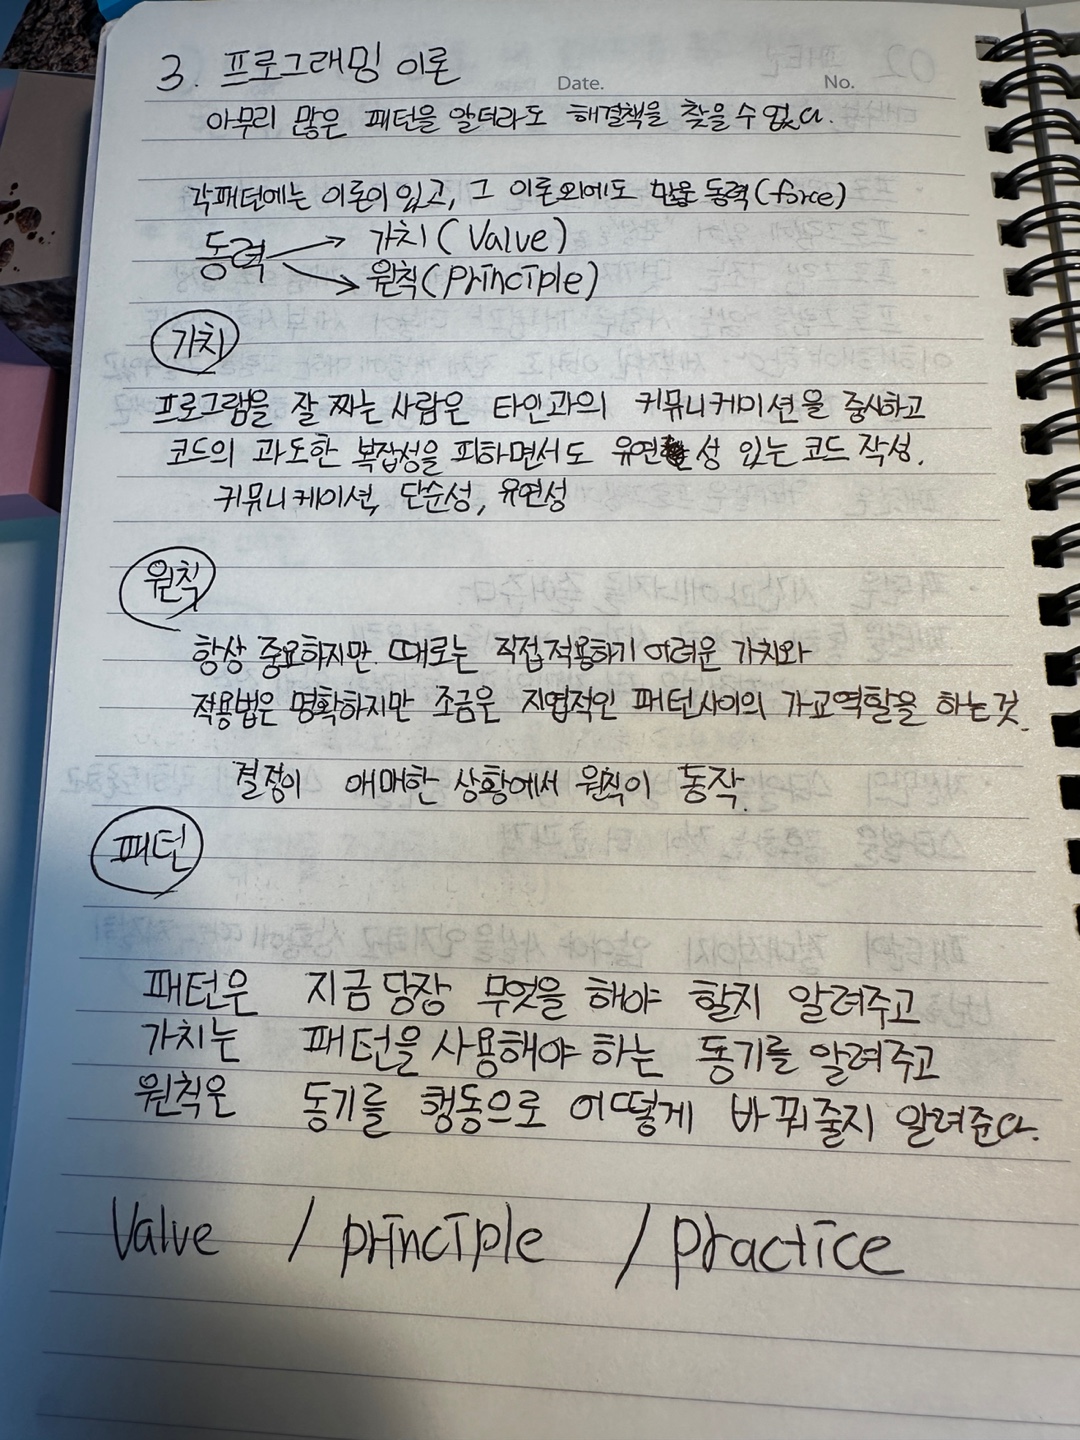 3. 프로그래밍 이론
Date.
No.
아무리 많은 패턴을 알더라도 해결책을 찾을 수 없다.
각 패턴에는 이론이 있고, 그 이론외에도 많은 동력(force)
동력 → 가치(Valve)
→ 원칙(principle)
가치
프로그램을 잘 짜는 사람은 타인과의 커뮤니케이션을 중시하고
코드의 과도한 복잡성을 피하면서도 유연성 있는 코드 작성.
커뮤니케이션, 단순성, 유연성
원칙
항상 중요하지만 때로는 직접적용하기 어려운 가치와
적용법은 명확하지만 조금은 지엽적인 패턴사이의 가교역할을 하는 것.
결정이 애매한 상황에서 원칙이 동작.
패턴
패턴은 지금 당장 무엇을 해야 할지 알려주고
가치는 패턴을 사용해야 하는 동기를 알려주고
원칙은 동기를 행동으로 어떻게 바꿔줄지 알려준다.
Valve / principle / practice